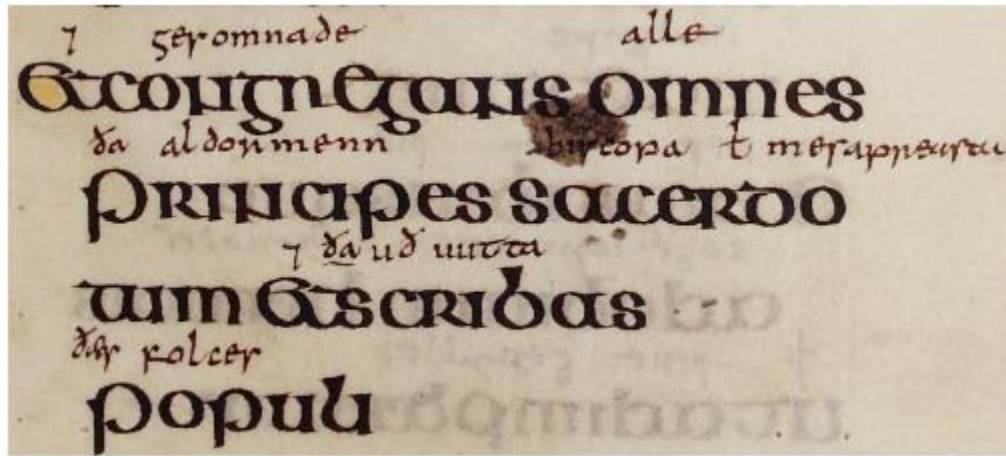 ⁊ gesomnade alle
Et congregans omnes
ða aldormenn biscopa ł mesapreasta
principes sacerdo
⁊ ða uð uutta
tum et scribas
ðæs folces
populi